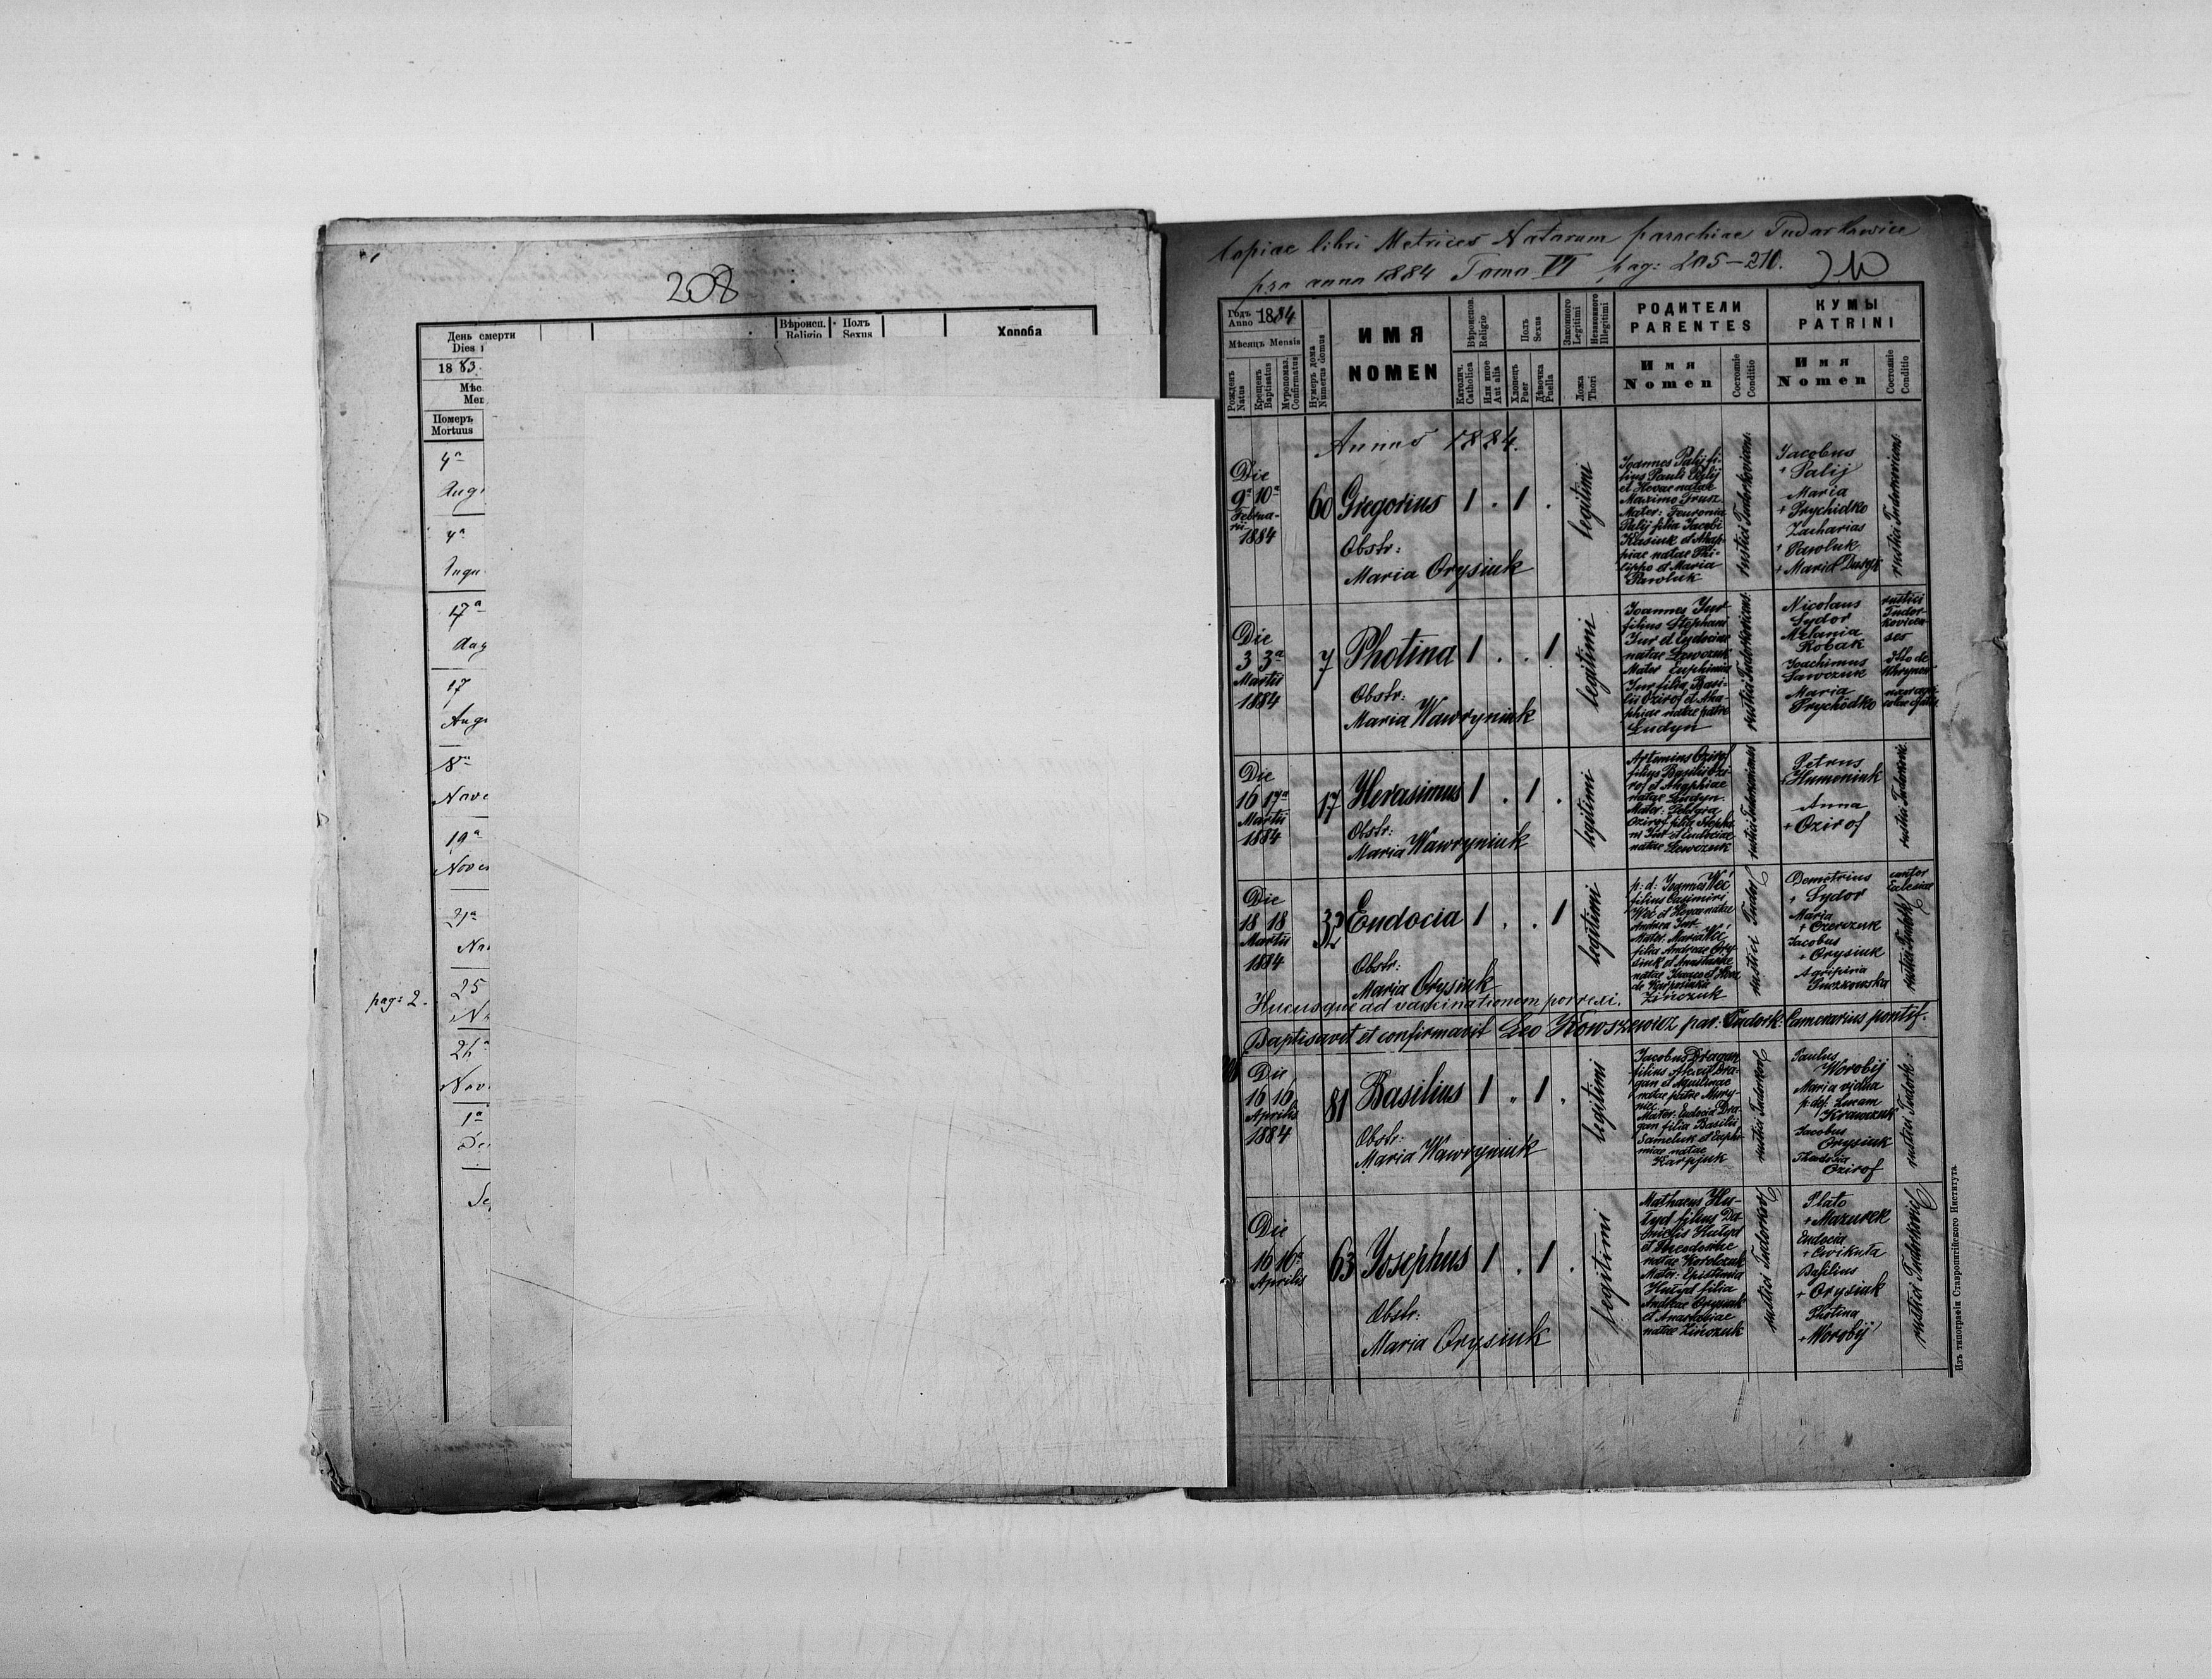 208
День смерти
Dies
1883.
Мѣс.
Mer
Померъ
Mortuus
Вѣроисп.
Religio
Полъ
Sexus
Хороба
4a
Aug
4a
Augu
17a
Aug
17
Aug
8a
Nove
19a
Nove
21a
No
pag: 2.
25
N
26a
Nov
1a
De
Copiae libri Metrices Natorum parochiae Tudorkowice
pro anno 1884 Tomo VI pag: 205-210.
210
Годъ
Anno 1884
Мѣсяцъ Mensis
Рожденъ
Natus
Крещенъ
Baptisatus
Мѵропомаз.
Confirmatus
Нумеръ дома
Numerus domus
ИМЯ
NOMEN
Вѣроиспов.
Religio
Католич.
Catholica
Или иное
Aut alia
Полъ
Sexus
Хлопецъ
Puer
Дѣвочка
Puella
Законного
Legitimi
Незаконного
Illegitimi
Ложа
Thori
РОДИТЕЛИ
PARENTES
Имя
Nomen
Состояніе
Conditio
КУМЫ
PATRINI
Имя
Nomen
Состояніе
Conditio
Annus 1884.
Die
9a 10a
Februa-
rii
1884
60
Gregorius
1 . 1 .
Obstr:
Maria Orysiuk
legitimi
Joannes Palij fi-
lius Pauli Palij
et Hevae natae
Maximo Prusz
Mater: Feuronia
Palij filia Jacobi
Kasiuk et Ahap-
piae natae Phi-
lippo et Maria
Pawluk
rustici Tudorkovicens.
Jacobus
+ Palij
Maria
+ Prychidko
Zacharias
+ Pawluk
+ Maria
rustici Tudorkovicens.
Die
3 3a
Martii
1884
7
Photina
1 . . 1
Obstr:
Maria Wawryniuk
legitimi
Joannes Jur
filius Stephani
Jur et Eudociae
natae Lewczuk
Mater Euphimia
Jur filia Basi-
lii Ozirof et Aha-
phiae natae patre
Ludyn
rustici Tudorkovicens.
Nicolaus
Sydor
Melania
Robak
Joachimus
Sawczuk
Maria
Prychodko
rustici
Tudor-
kovicen-
ses
Die
16 17a
Martii
1884
17
Herasimus
1 . 1 .
Obstr:
Maria Wawryniuk
legitimi
Artemius Ozirof
filius Basilii Ozi-
rof et Ahaphiae
natae Ludyn.
Mater: Pelagia
Ozirof filia Stepha-
ni Jur et Eudociae
natae Lewczuk
Petrus
+ Humeniuk
Anna
+ Ozirof
Die
18 18
Martii
1884
32
Eudocia
1 . . 1
Obstr:
Maria Orysiuk
legitimi
p: d: Joannes Weć
filius Casimiri
Weć et Hevae natae
Andrea Jur
Mater. Maria Weć
filia Andreae Ory-
siuk et Anastasiae
Zińczuk
rustici Tudor
Demetrius
+ Sydor
Maria
+ Ozerczuk
Jacobus
+ Orysiuk
Agripina
Puczkowska
cantor
Eclesiae
rustici Tudork
Hucusque ad vaccinationem porrexi.
Baptisavit et confirmavit Leo Kowszewicz par: Tudork: Camerarius pontif.
Die
16 16
Aprilis
1884
81
Basilius
1 . 1 .
Obstr:
Maria Wawryniuk
legitimi
Jacobus Dragan
filius Alexii Dra-
gan et Aquilinae
natae patre Mury-
niec
Mater. Eudocia Dra-
gan filia Basilii
Sameluk et Euphi-
miae natae
Karpjuk
rustici Tudorkov
Paulus
Worobij
Maria vidua
p: def: Lucam
Krawczuk
Jacobus
Orysiuk
Theodosia
Ozirof
rustici Tudork:
Die
16 16a
Aprilis
63
Josephus
1 . 1 .
Obstr:
Maria Orysiuk
legitimi
Mathaeus Hu-
tyd filius Da-
nielis Hutyd
et Theodosiae
natae Korolczuk
Mater: Epistimia
Hutyd filia
Andreae Orysiuk
et Anastasiae
natae Zińczuk
rustici Tudorkov
Plato
+ Mazurek
Eudocia
+ Cwikuła
Basilius
+ Orysiuk
Photina
+ Worobij
rustici Tudorkovic
Изъ типографіи Ставропигійского Института.